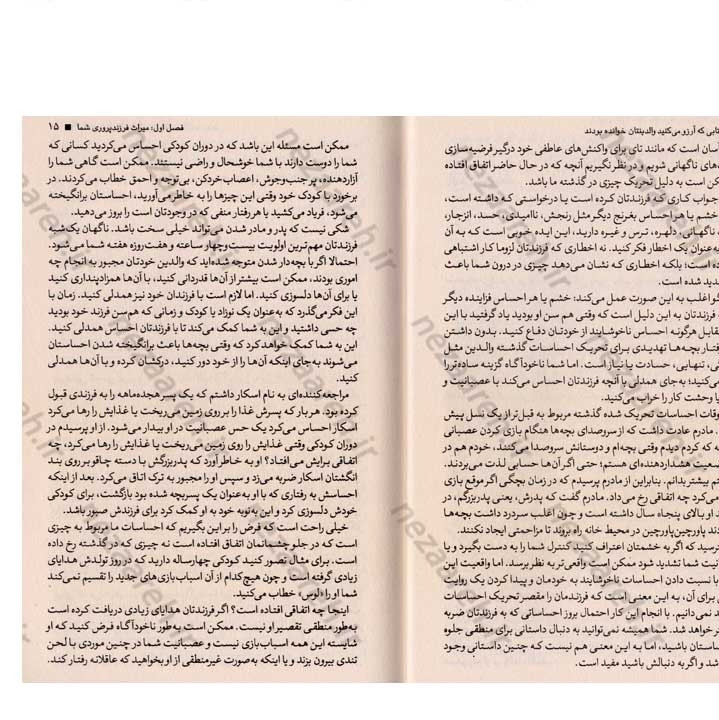 تابی که آرزو می‌کنید والدینتان خوانده بودند
آسان است که مانند تای برای واکنش‌های عاطفی خود درگیر فرضیه‌سازی
های ناگهانی شویم و در نظر نگیریم آنچه که در حال حاضر اتفاق افتاده
کن است به دلیل تحریک چیزی در گذشته ما باشد.
جواب کاری کـه فرزنـدتان کرده اسـت یـا درخواسـتی کـه داشـته اسـت،
خشم یا هر احساس بغرنج دیگر مثل رنجش، ناامیدی، حسد، انزجار،
ناگهـانی، دلهـره، ترس و غیره دارید، ایـن ایـده خـوبی اسـت کـه بـه آن
به‌عنوان یک اخطار فکر کنید. نه اخطاری که فرزندتان لزوما کار اشتباهی
ده است؛ بلکـه اخطـاری کـه نشـان می‌دهد چیـزی در درون شما باعـث
دید شده است.
و اغلب به این صورت عمل می‌کند: خشم یا هر احساس فزاینده دیگر
فرزندتان به این دلیل است که وقتی هم سن او بودید یاد گرفتید با این
قابل هرگونه احساس ناخوشایند از خودتـان دفـاع کنیـد. بـدون داشـتن
رفتـار بچه‌هـا تهدیـدی بـرای تحریـک احساسـات گذشـته والدیـن مثـل
ی، تنهـایی، حسـادت یـا نیـاز اسـت. امـا شـما ناخودآگاه گزینه ساده‌تر را
می‌کنید؛ به‌جای همدلی با آنچه فرزندتان احساس می‌کنـد با عصبانیـت و
یا وحشت کار را خراب می‌کنید.
وقات احساسات تحریک شده گذشته مربوط به قبل‌تر از یک نسل پیش
مادرم عادت داشت که از سروصدای بچه‌ها هنگام بازی کردن عصبانی
ه که کردم دیدم وقتی بچه‌ام و دوستانش سروصدا می‌کنند، خودم هم در
ضعیت هشداردهنده‌ای هستم؛ حتی اگر آن‌ها حسابی لذت می‌بردند.
تم بیشتر بدانم. بنابراین از مادرم پرسیدم که در زمان بچگی اگر موقع بازی
ی‌کرد چه اتفاقی رخ می‌داد. مادرم گفت کـه پدرش، یعنی پدربزرگم، در
د او بالای پنجاه سال داشته است و چون اغلب سردرد داشت بچه‌هـا
دند پاورچین‌پاورچین در محیط خانه راه بروند تا مزاحمتی ایجاد نکنند.
رسید که اگر به خشمتان اعتراف کنید کنترل شما را به دست بگیرد و یا
نیت شما تشدید شود ممکن است واقعی‌تر به نظر برسد. اما واقعیت این
با نسبت دادن احساسات ناخوشایند به خودمان و پیدا کردن یک روایت
برای آن، به ایـن معنـی است کـه فرزندمان را مقصر تحریک احساسـات
د نمی‌دانیم. با انجام این کار احتمال بروز احساساتی که به فرزندتان ضربه
ر خواهد شد. شما همیشه نمی‌توانید به دنبال داستانی برای منطقی جلوه
ساستان باشید، امـا بـه ایـن معنـی هـم نیسـت کـه چنین داستانی وجـود
شد و اگر به دنبالش باشید مفید است.
فصل اول: میراث فرزندپروری شما ■ ۱۵
ممکن است مسئله این باشد که در دوران کودکی احساس می‌کردید کسانی که
شما را دوست دارند با شما خوشحال و راضی نیستند. ممکن است گاهی شما را
آزاردهنده، پر جنب‌وجوش، اعصاب‌خردکن، بی‌توجه و احمق خطاب می‌کردند. در
برخورد با کودک خود وقتی این چیزها را به خاطر می‌آورید، احساستان برانگیخته
می‌شود، فریاد می‌کشید یا هر رفتار منفی که در وجودتان است را بروز می‌دهید.
شکی نیست که پدر و مادر شدن می‌تواند خیلی سخت باشد. ناگهان یک‌شبه
فرزندتان مهم‌ترین اولویت بیست‌وچهار ساعته و هفت‌روزه هفته شما می‌شود.
احتمالا اگر با بچه‌دار شدن متوجه شده‌اید که والدین خودتان مجبور به انجام چه
اموری بودند، ممکن است بیشتر از آن‌ها قدردانی کنید، با آن‌ها همزادپنداری کنید
یا برای آن‌ها دلسوزی کنید. اما لازم است با فرزندان خود نیز همدلی کنید. زمان با
این فکر می‌گذرد که به‌عنوان یک نوزاد یا کودک و زمانی که هم‌سن فرزند خود بودید
چه حسی داشتید و این به شما کمک می‌کند تا با فرزندتان احساس همدلی کنید.
این به شما کمک خواهد کرد که وقتی بچه‌ها باعث برانگیخته شدن احساستان
می‌شوند به جای اینکه آن‌ها را از خود دور کنید، درکشان کرده و با آن‌ها همدلی
کنید.
مراجعه‌کننده‌ای به نام اسکار داشتم که یک پسر هجده‌ماهه را به فرزندی قبول
کرده بود. هر بار که پسرش غذا را بر روی زمین می‌ریخت یا غذایش را رها می‌کرد
اسکار احساس می‌کرد یک حس عصبانیت در او بیدار می‌شود. از او پرسیدم در
دوران کودکی وقتی غذایش را روی زمین می‌ریخت یا غذایش را رها می‌کرد، چه
اتفاقی برایش می‌افتاد؟ او به خاطر آورد که پدربزرگش با دسته چاقو بر روی بند
انگشتان اسکار ضربه می‌زد و سپس او را مجبور به ترک اتاق می‌کرد. بعد از اینکه
احساسش به رفتاری که با او به‌عنوان یک پسربچه شده بود بازگشت، برای کودکی
خودش دلسوزی کرد و این به‌نوبه خود به او کمک کرد برای فرزندش صبور باشد.
خیلی راحت است که فرض را بر این بگیریم که احساسات ما مربوط به چیزی
است کـه در جلو چشمانمان اتفاق افتاده است نـه چیـزی کـه در گذشـته رخ داده
است. برای مثال تصور کنید کودکی چهارساله دارید که در روز تولدش هدایای
زیادی گرفته است و چون هیچ‌کدام از آن اسباب‌بازی‌های جدید را تقسیم نمی‌کند
شما او را «لوس» خطاب می‌کنید.
اینجا چه اتفاقی افتاده است؟ اگر فرزندتان هدایای زیادی دریافت کرده است
به‌طور منطقی تقصیر او نیست. ممکن است به‌طور ناخودآگاه فرض کنید که او
شایسته این همه اسباب‌بازی نیست و عصبانیت شما در چنین موردی با لحن
تندی بیرون بزند و یا اینکه به‌صورت غیرمنطقی از او بخواهید که عاقلانه رفتار کند.
nezaareh.ir